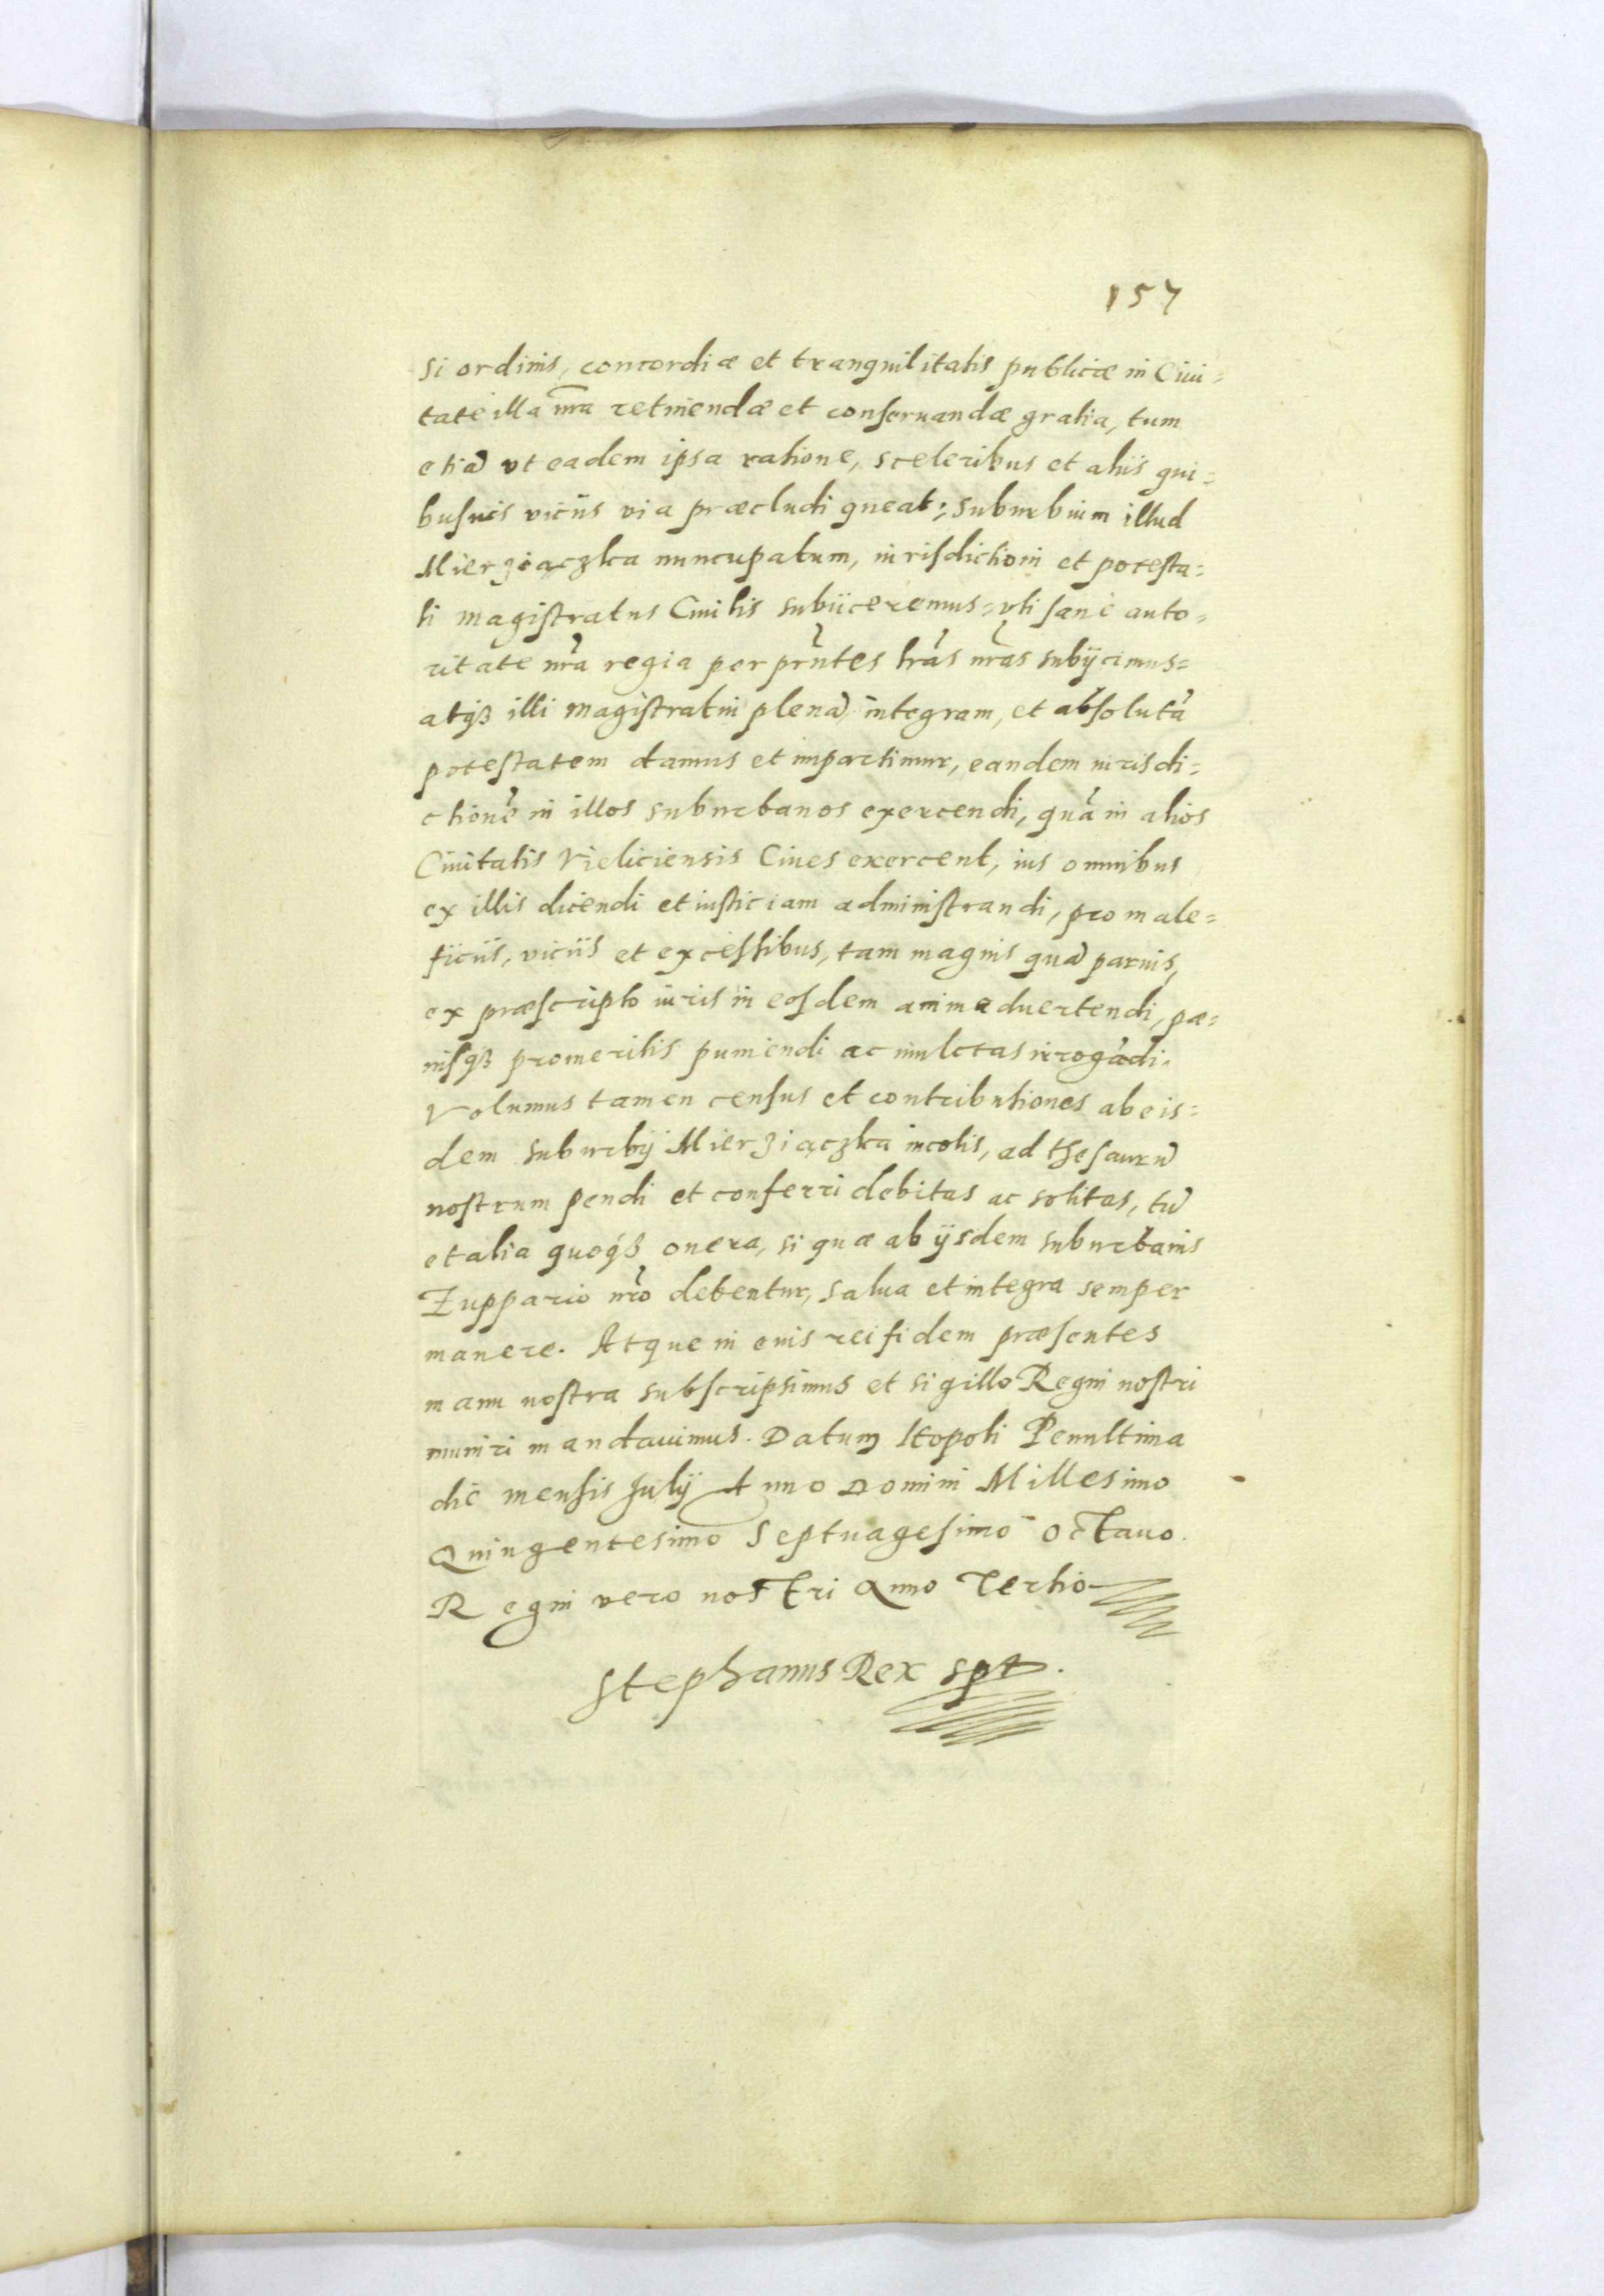 157
si ordinis, concordiæ et tranquilitatis publicæ in Ciui=
tate illa nr̃a retinendæ et conseruandæ gratia, tum
etiã vt eadem ipsa ratione, sceleribus et aliis qui=
busuis viciis via præcludi queat; suburbium illud
Mierziączka nuncupatum, iurisdictioni et potesta=
ti magistratus Ciuilis subiiceremus= vti sanè auto=
ritate nr̃a regia per prñtes lrãs nrãs subijcimus=
atqȝ illi magistratui plenã, integram, et absolutã
potestatem damus et impartimur, eandem iurisdi=
ctionẽ in illos suburbanos exercendi, quã in alios
Ciuitatis Vieliciensis Ciues exercent, ius omnibus
ex illis dicendi et iusticiam administrandi, pro male=
ficiis, viciis et excessibus, tam magnis quã paruis,
ex præscripto iuris in eosdem animaduertendi, pæ=
nisqȝ promeritis puniendi ac mulctas irrogãdi.
Volumus tamen census et contributiones ab eis=
dem suburbij Mierziączka incolis, ad thesaurũ
nostrum pendi et conferri debitas ac solitas, tũ
et alia quoqȝ onera, si quæ ab ijsdem suburbanis
Zuppario nrõ debentur, salua et integra semper
manere. Atque in euis rei fidem præsentes
manu nostra subscripsimus et sigillo Regni nostri
muniri mandauimus. Datum Leopoli Penultima
die mensis Julij Anno Domini Millesimo
Quingentesimo Septuagesimo octauo.
Regni vero nostri Anno Tertio
Stephanus Rex spt.